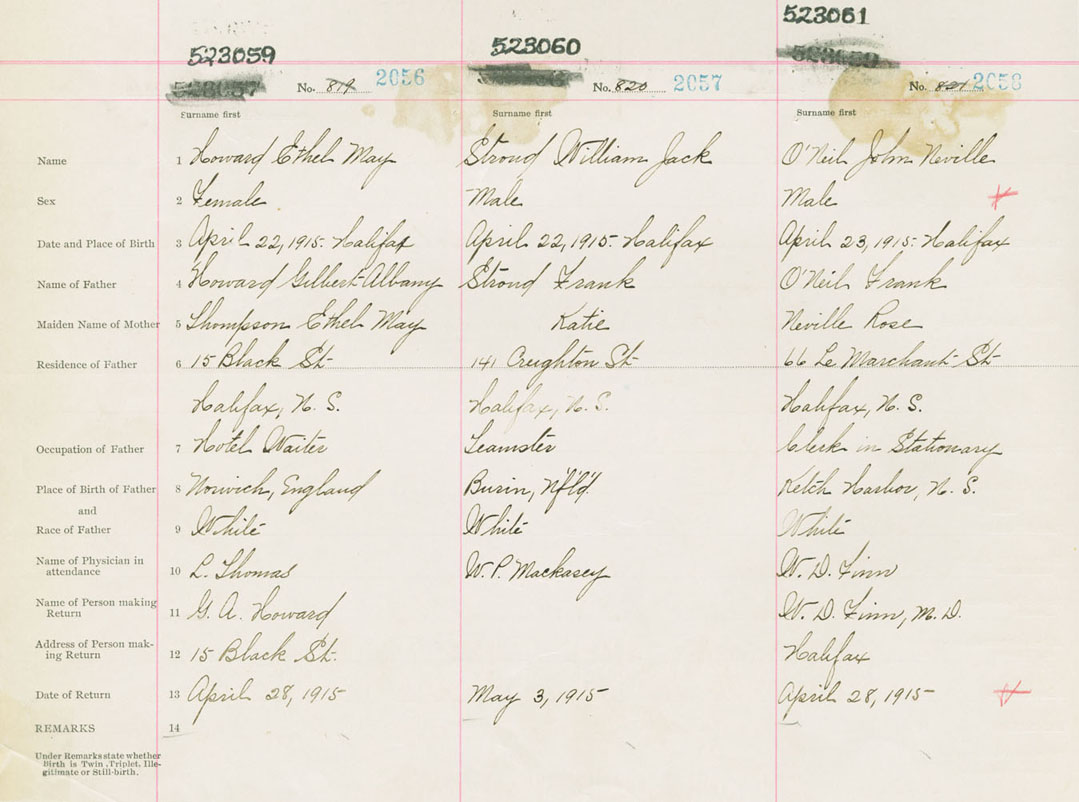 523059 523060 523061
No. 819 2056 No. 820 2057 No. 821 2058
Surname first Surname first Surname first
Name 1 Howard Ethel May Stroud William Jack O'Neil John Neville
Sex 2 Female Male Male
Date and Place of Birth 3 April 22, 1915- Halifax April 22, 1915- Halifax April 23, 1915- Halifax
Name of Father 4 Howard Gilbert-Albany Stroud Frank O'Neil Frank
Maiden Name of Mother 5 Thompson Ethel May Katie Neville Rose
Residence of Father 6 15 Black St- 141 Creighton St- 66 Le Marchant- St-
Halifax, N. S. Halifax, N. S. Halifax, N. S.
Occupation of Father 7 Hotel Waiter Teamster Clerk in Stationary
Place of Birth of Father 8 Norwich, England Burin, Nf'l'd'. Ketch Harbor, N. S.
and
Race of Father 9 White White White
Name of Physician in
attendance 10 L. Thomas W. P. Mackasey W. D. Finn
Name of Person making
Return 11 G. A. Howard W. D. Finn, M. D.
Address of Person mak-
ing Return 12 15 Black St. Halifax
Date of Return 13 April 28, 1915- May 3, 1915- April 28, 1915-
REMARKS 14
Under Remarks state whether
Birth is Twin, Triplet, Ille-
gitimate or Still-birth.